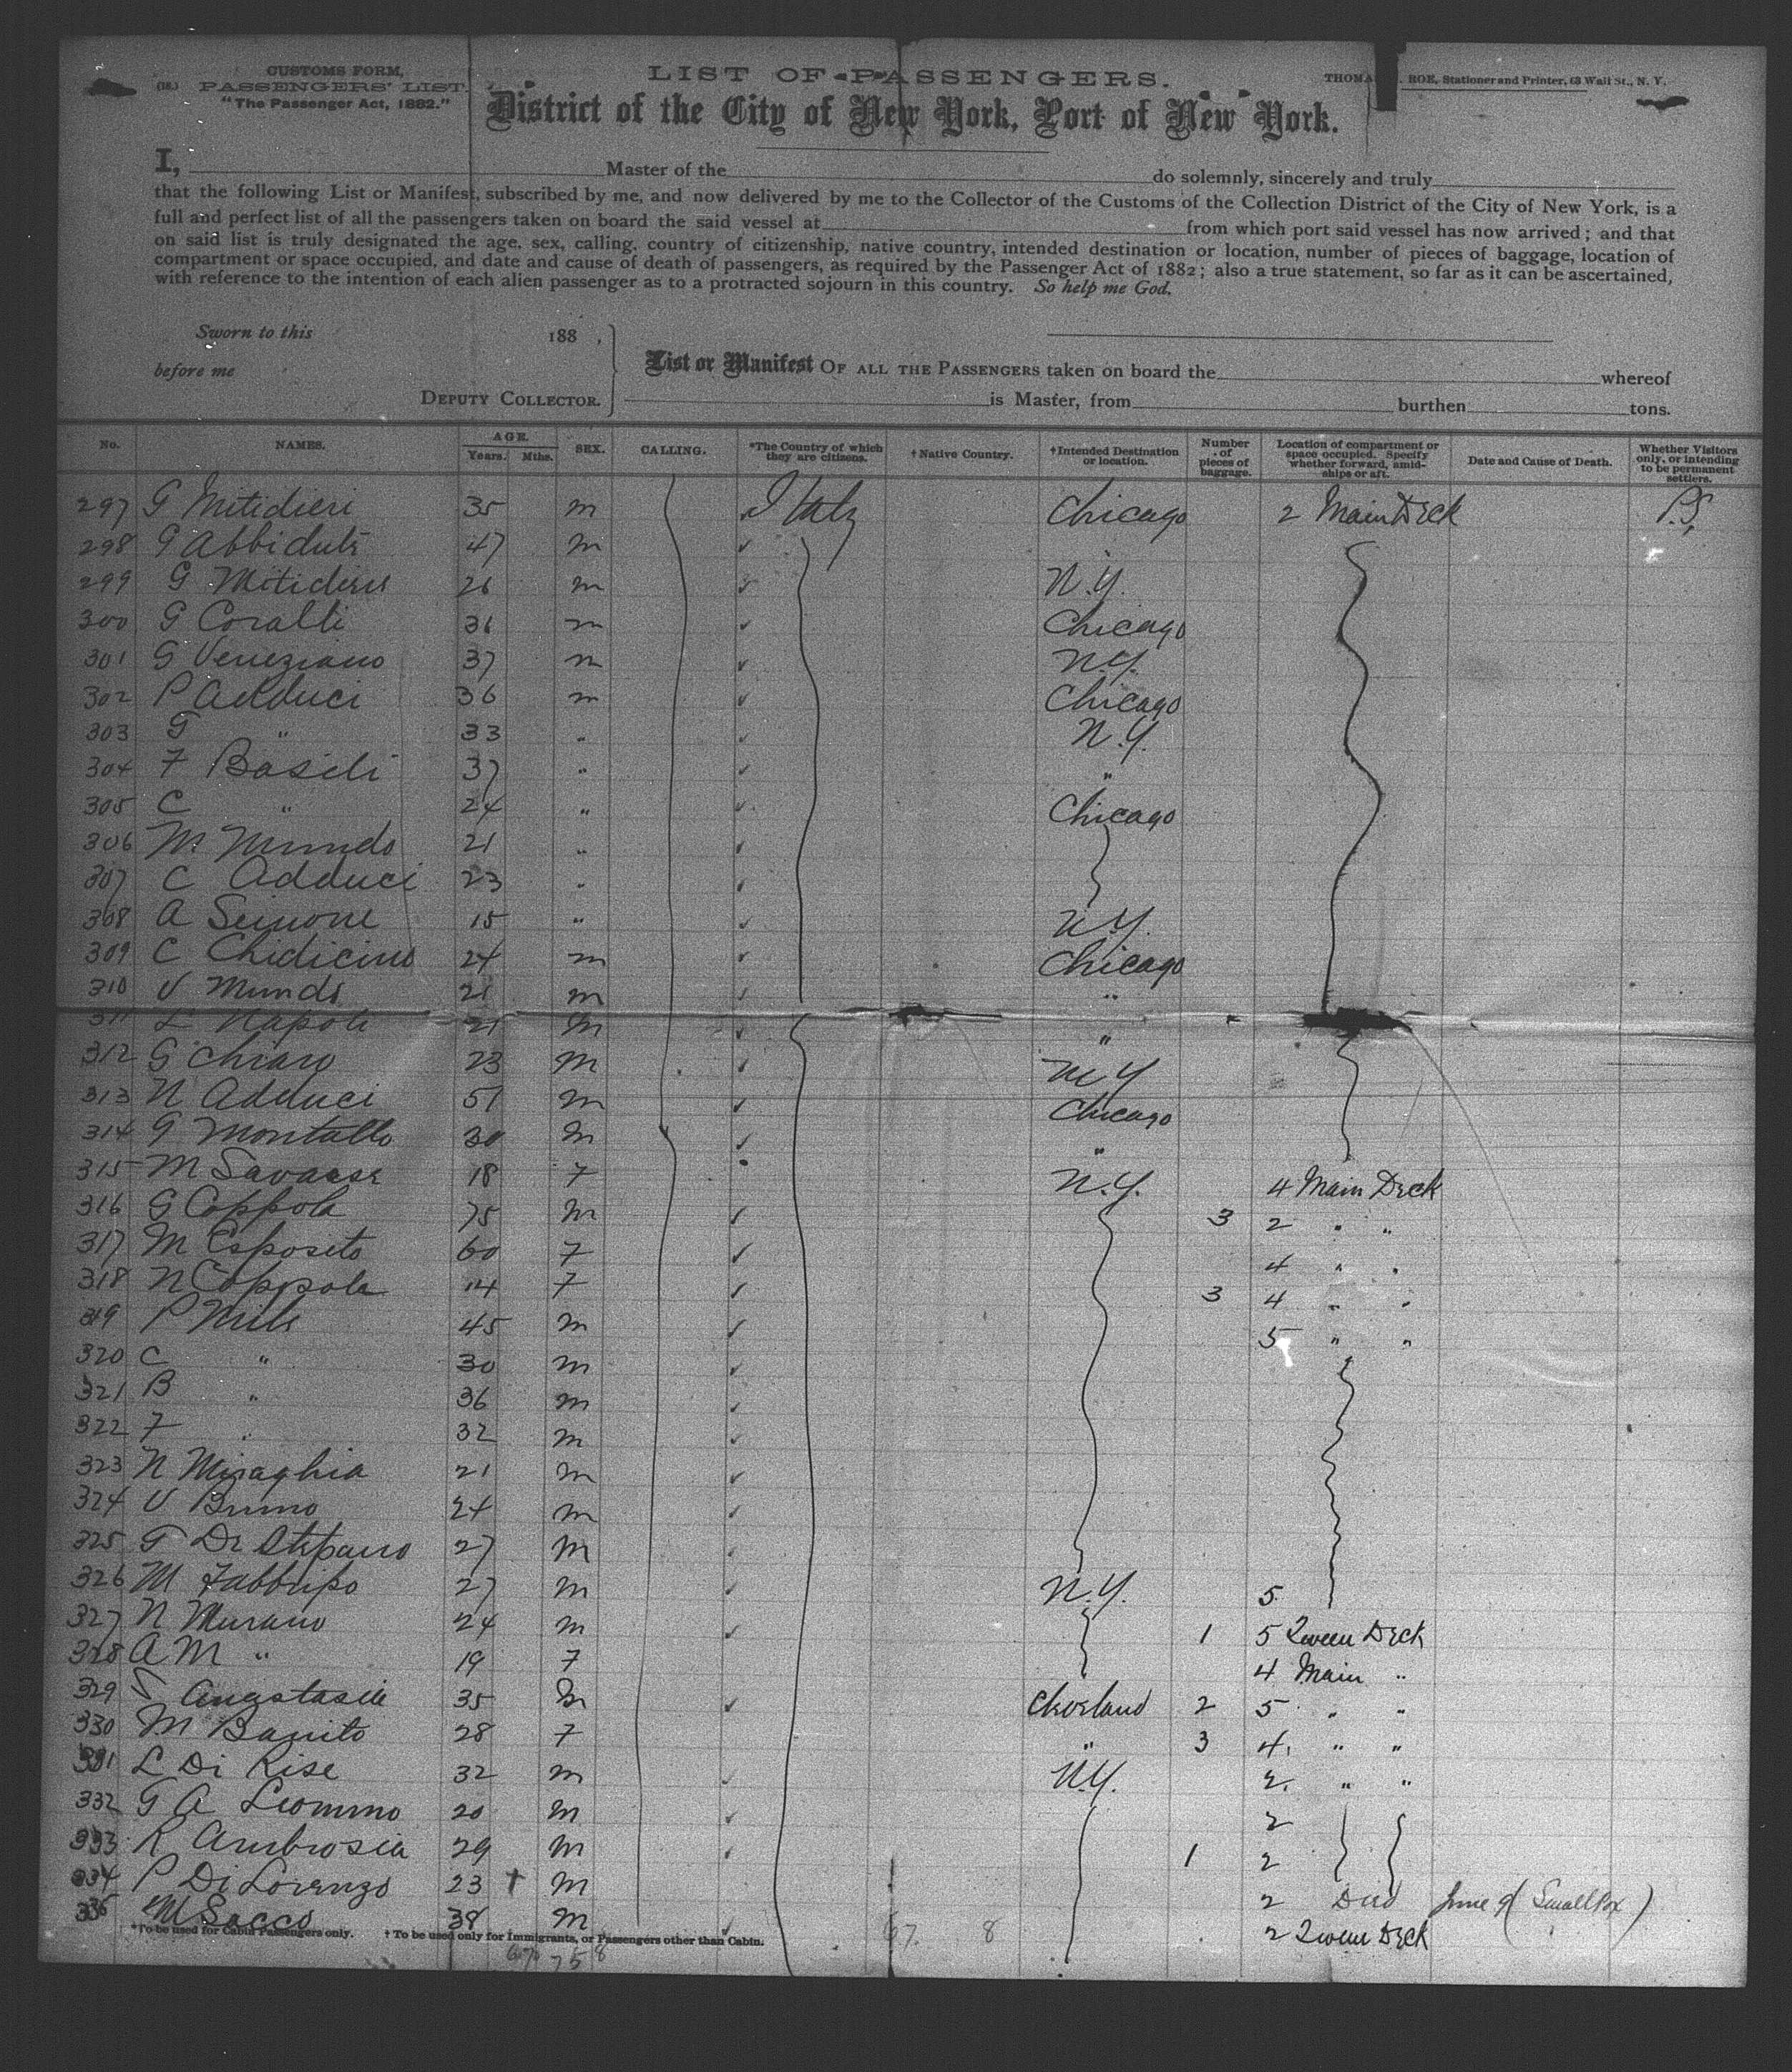 CUSTOMS FORM,
(18.) PASSENGERS' LIST.
"The Passenger Act, 1882."
LIST OF PASSENGERS.
THOMA ROE, Stationer and Printer, 63 Wall St., N. Y.
District of the City of New York, Port of New York.
I, Master of the do solemnly, sincerely and truly
that the following List or Manifest, subscribed by me, and now delivered by me to the Collector of the Customs of the Collection District of the City of New York, is a
full and perfect list of all the passengers taken on board the said vessel at from which port said vessel has now arrived; and that
on said list is truly designated the age, sex, calling, country of citizenship, native country, intended destination or location, number of pieces of baggage, location of
compartment or space occupied, and date and cause of death of passengers, as required by the Passenger Act of 1882; also a true statement, so far as it can be ascertained,
with reference to the intention of each alien passenger as to a protracted sojourn in this country. So help me God.
Sworn to this 188 ,
before me
DEPUTY COLLECTOR.
List or Manifest OF ALL THE PASSENGERS taken on board the whereof
is Master, from burthen tons.
No. NAMES. AGE. Years. Mths. SEX. CALLING. *The Country of which they are citizens. †Native Country. †Intended Destination or location. Number of pieces of baggage. Location of compartment or space occupied. Specify whether forward, amidships or aft. Date and Cause of Death. Whether Visitors only, or intending to be permanent settlers.
297 G Mitidieri 35 m Italy Chicago 2 Main Deck P.S.
298 G 47 m
299 G 26 m N.Y.
300 G Coralli 36 m Chicago
301 G Veneziano 37 m N.Y.
302 P Adduci 36 m Chicago
303 G " 33 " N.Y.
304 F Basili 37 " "
305 C " 24 " Chicago
306 M Mundo 21 "
307 C Adduci 23 "
308 A Simone 15 " N.Y.
309 C Chidicimo 24 m Chicago
310 V Mundo 21 m "
311 L Napoli 21 m "
312 G Chiaro 23 m N Y
313 N Adduci 51 m Chicago
314 G Montallo 30 m "
315 M 18 F N.Y. 4 Main Deck
316 G Coppola 75 m 3 2 " "
317 M Esposito 60 F 4 " "
318 N Coppola 14 F 3 4 " "
319 P Mile 45 m 5 " "
320 C " 30 m
321 B " 36 m
322 F " 32 m
323 N Miraghia 21 m
324 V Bruno 24 m
325 G De Stepano 27 m
326 M 27 m N.Y. 5
327 N Murano 24 m 1 5 Tween Deck
328 A M " 19 F 4 Main "
329 S Anastasia 35 m Cleveland 2 5 " "
330 M Banito 28 F " 3 4 " "
331 L Di Rise 32 m N.Y. 2 " "
332 G A 20 m 2
333 R Ambrosia 29 m 1 2
334 P Di Lorenzo 23 † m 2 Died June 9 (Small Pox)
335 M Sacco 38 m 2 Tween Deck
*To be used for Cabin Passengers only. †To be used only for Immigrants, or Passengers other than Cabin.
67. 8